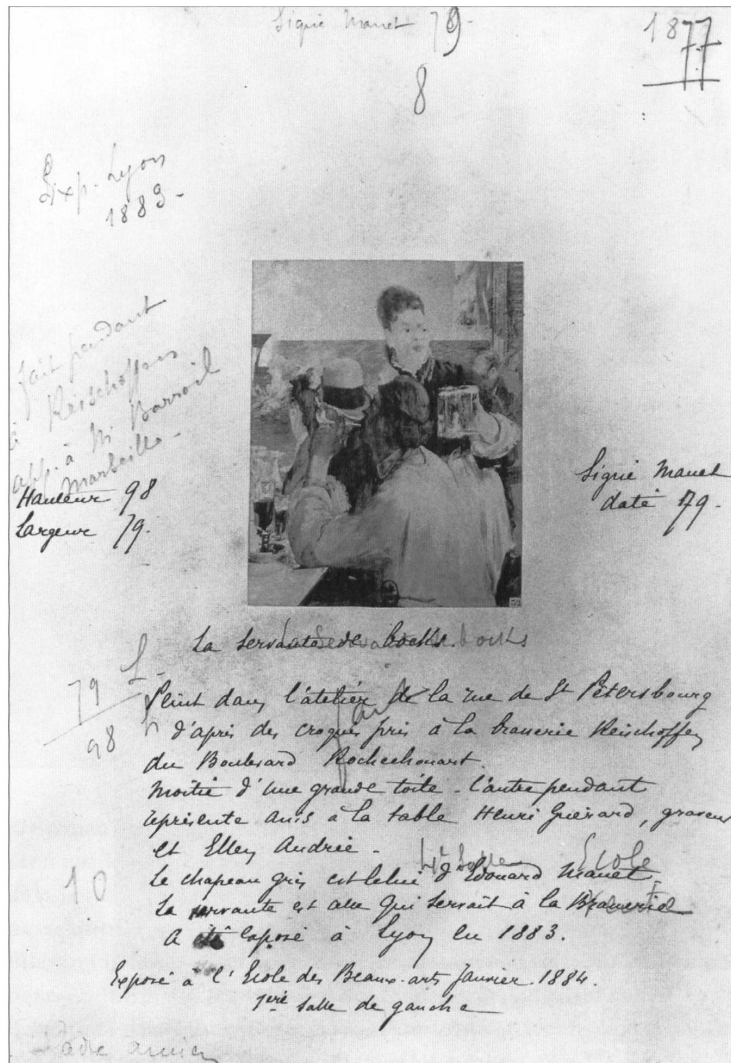 Signé Manet 79-
8
1877
Exp. Lyon
1883-
fait pendant
à Reischoffen
app. à M. Barroil
Marseille-
Hauteur 98
Largeur 79.
Signé Manet
daté 79-
La servante de bocks.
79 L-
98 h
Peint dans l'atelier de la rue de St Pétersbourg
d'après des croquis pris à la brasserie Reischoffen
du Boulevard Rochechouart.
Moitié d'une grande toile - l'autre pendant
représente assis à la table Henri Guérard, graveur
et Ellen Andrée -
Le chapeau gris est celui d'Edouard Manet
École
La servante est celle qui servait à la Brasserie
10
A été exposé à Lyon en 1883.
Exposé à l'Ecole des Beaux-arts Janvier 1884.
1ère salle de gauche
Cadre ancien